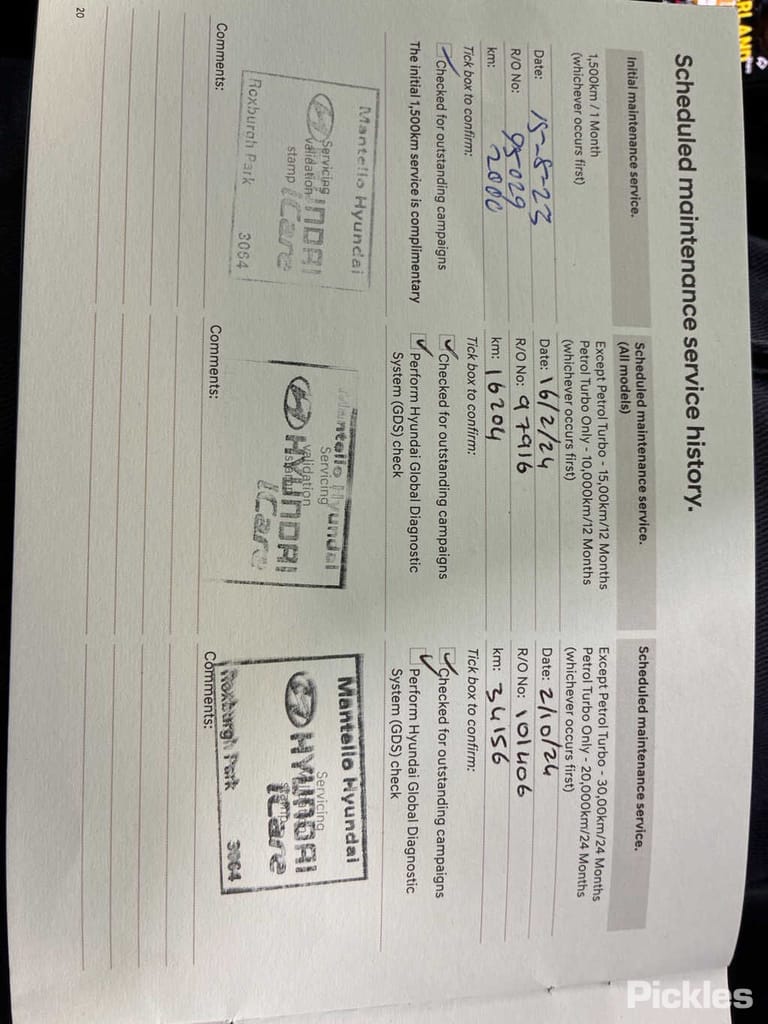 Scheduled maintenance service history.
Initial maintenance service.
1,500km / 1 Month
(whichever occurs first)
Date: 15-8-23
R/O No: 95029
km: 2000
Tick box to confirm:
Checked for outstanding campaigns
The initial 1,500km service is complimentary
Mantello Hyundai
Servicing
validation
stamp
HYUNDAI
iCare
Roxburgh Park 3064
Comments:
Scheduled maintenance service.
(All models)
Except Petrol Turbo - 15,00km/12 Months
Petrol Turbo Only - 10,000km/12 Months
(whichever occurs first)
Date: 16/2/24
R/O No: 97916
km: 16204
Tick box to confirm:
Checked for outstanding campaigns
Perform Hyundai Global Diagnostic
System (GDS) check
Mantello Hyundai
Servicing
validation
stamp
HYUNDAI
iCare
Comments:
Scheduled maintenance service.
Except Petrol Turbo - 30,00km/24 Months
Petrol Turbo Only - 20,000km/24 Months
(whichever occurs first)
Date: 2/10/24
R/O No: 101406
km: 34156
Tick box to confirm:
Checked for outstanding campaigns
Perform Hyundai Global Diagnostic
System (GDS) check
Mantello Hyundai
Servicing
HYUNDAI
stamp
iCare
Roxburgh Park 3064
Comments:
20
Pickles